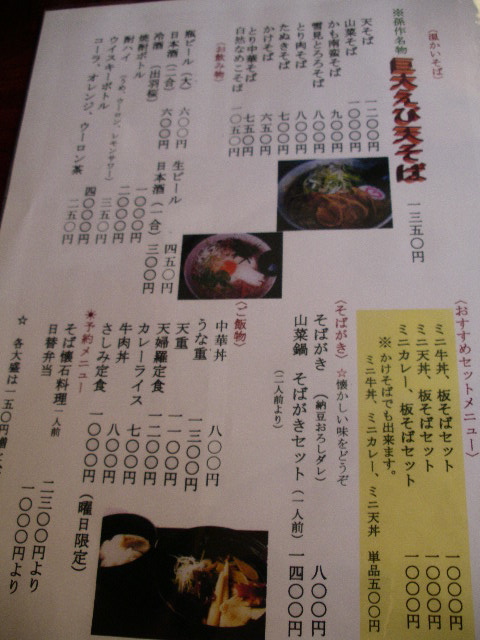 (温かいそば)
※孫作名物 巨大えび天そば 一三五〇円
天そば 一二〇〇円
山菜そば 一〇〇〇円
かも南蛮そば 九〇〇円
雪見とろろそば 八〇〇円
とり肉そば 八〇〇円
たぬきそば 七〇〇円
かけそば 六五〇円
とり中華そば 七五〇円
白然なめこそば 一〇五〇円
(お飲み物)
瓶ビール(大) 六〇〇円
日本酒(二合) 六〇〇円
冷酒(出羽桜)
焼酎ボトル
酎ハイ(うめ、ウーロン、レモンサワー)
ウイスキーボトル
コーラ、オレンジ、ウーロン茶
生ビール 四五〇円
日本酒(一合) 三〇〇円
一〇〇〇円
二〇〇〇円
三五〇円
四〇〇〇円
二五〇円
(おすすめセットメニュー)
ミニ牛丼、板そばセット 一〇〇〇円
ミニ天丼、板そばセット 一〇〇〇円
ミニカレー、板そばセット 一〇〇〇円
※かけそばでも出来ます。
ミニ牛丼、ミニカレー、ミニ天丼 単品五〇〇円
(そばがき)☆懐かしい味をどうぞ
そばがき(納豆おろしダレ) 八〇〇円
山菜鍋 そばがきセット(一人前) 一四〇〇円
(二人前より)
(ご飯物)
中華丼 八〇〇円
うな重 一三〇〇円
天重 一一〇〇円
天婦羅定食 一二〇〇円
カレーライス 七〇〇円
牛肉丼 八〇〇円
さしみ定食 一〇〇〇円(曜日限定)
☀予約メニュー
そば懐石料理一人前 二三〇〇円より
日替弁当 一〇〇〇円より
☆ 各大盛は一五〇円増